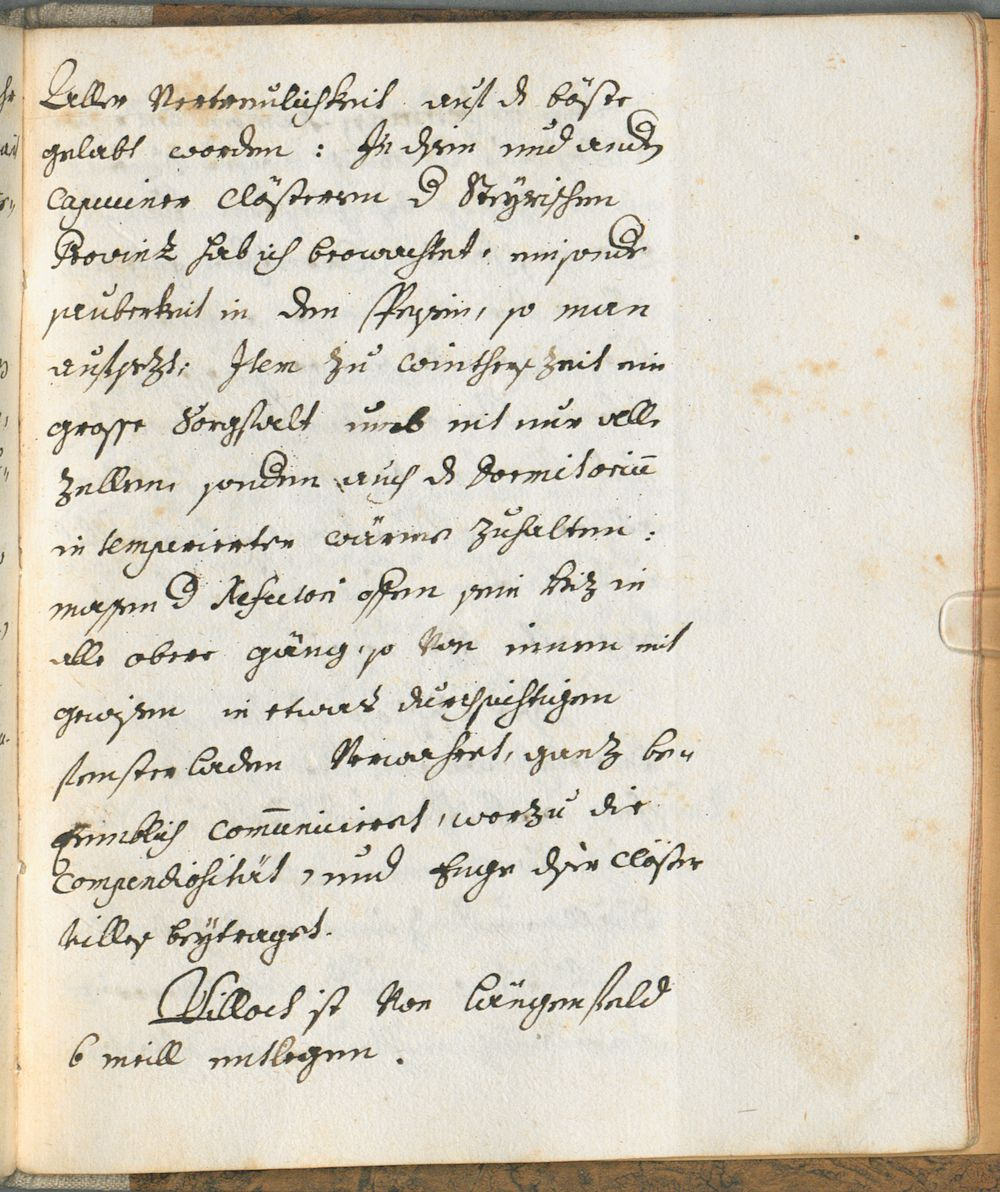 aller Vertreulichkeit auf d böste
gelabt worden: In disem und andn
Capuciner Clösteren d Steyrischen
Provintz hab ich beobachtet, ein sonde
sauberkeit in den Speysen, so man
aufsetzt: Item zu wintherszeit ein
grosse Sorgfalt umb nit nur alle
Zellen, sondern auch d Dormitorium
in temperierter wärme zuhalten:
massen d Refectori offen sein hitz in
alle obere gäng, so Von innen mit
gewissen in etwas durchsichtigen
fensterladen Verwahret, gantz be-
quemblich com̄uniciert, worzu die
Compendiosität, und Enge diser Clöster
Villes beytraget.
Villach ist Von Längenfeld
6 meill entlegen.